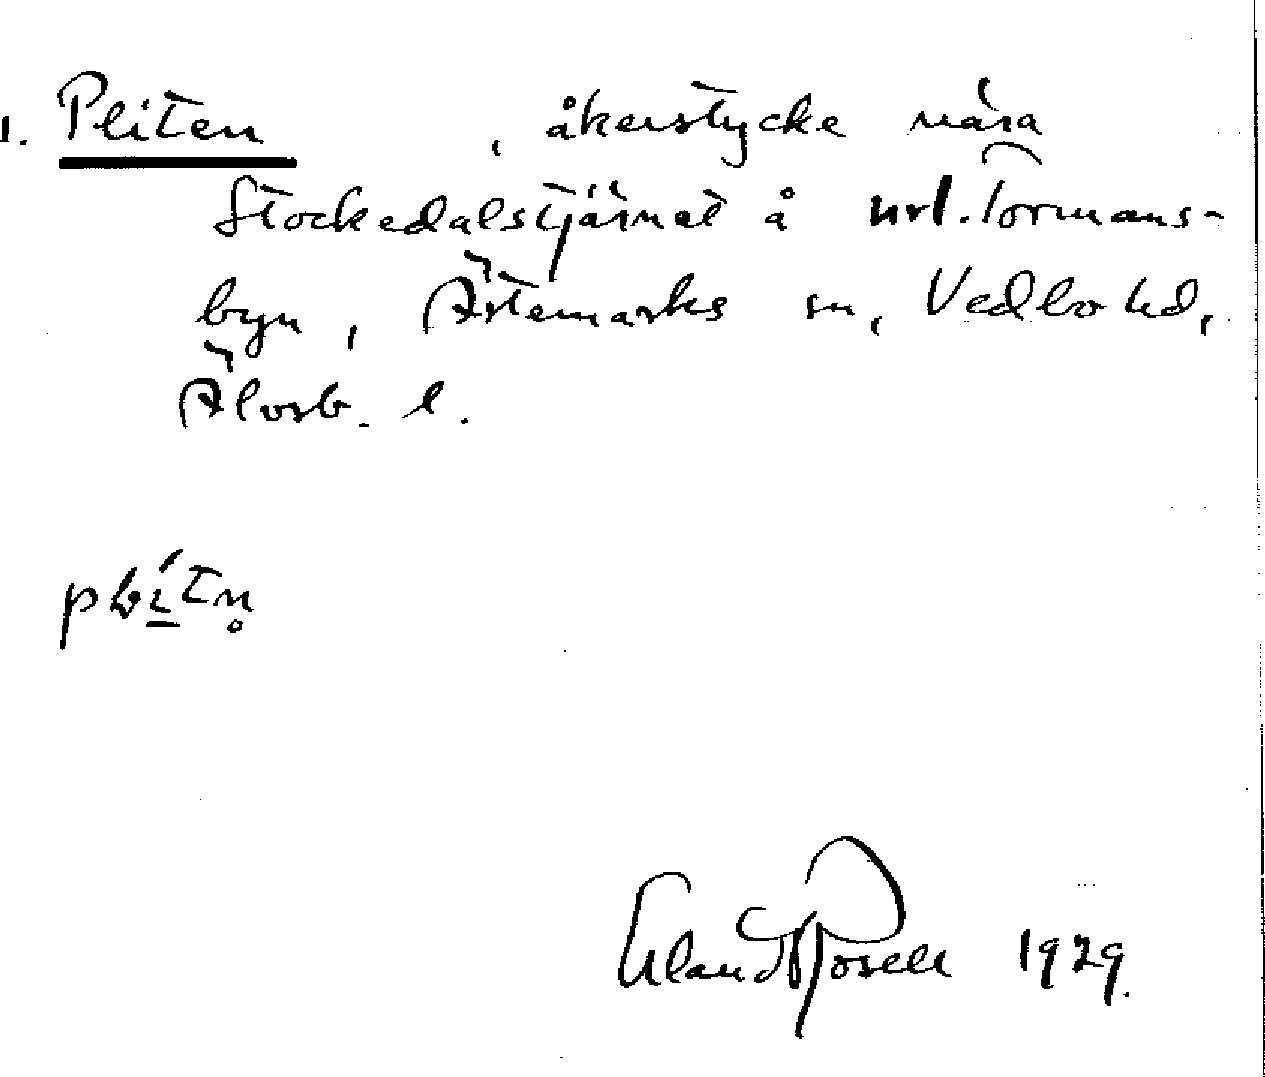 1. Pliten , åkerstycke nära
Stockedalstjärnet å nrl. Tormans-
byn, Ärtemarks sn, Vedbo hd,
Älvsb. l.
Erland Rosell 1929.